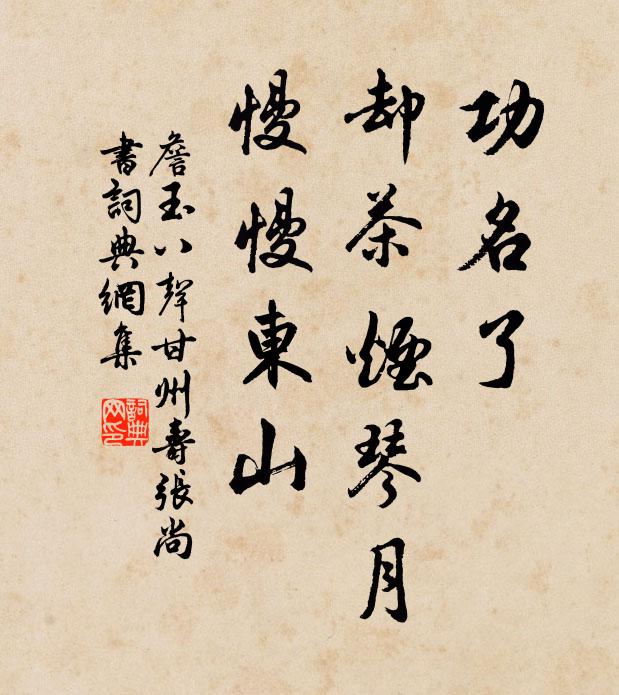 功名了
却茶煙琴月
慢慢東山
詹玉八聲甘州壽張尚
書詞典網集
詞典
网印